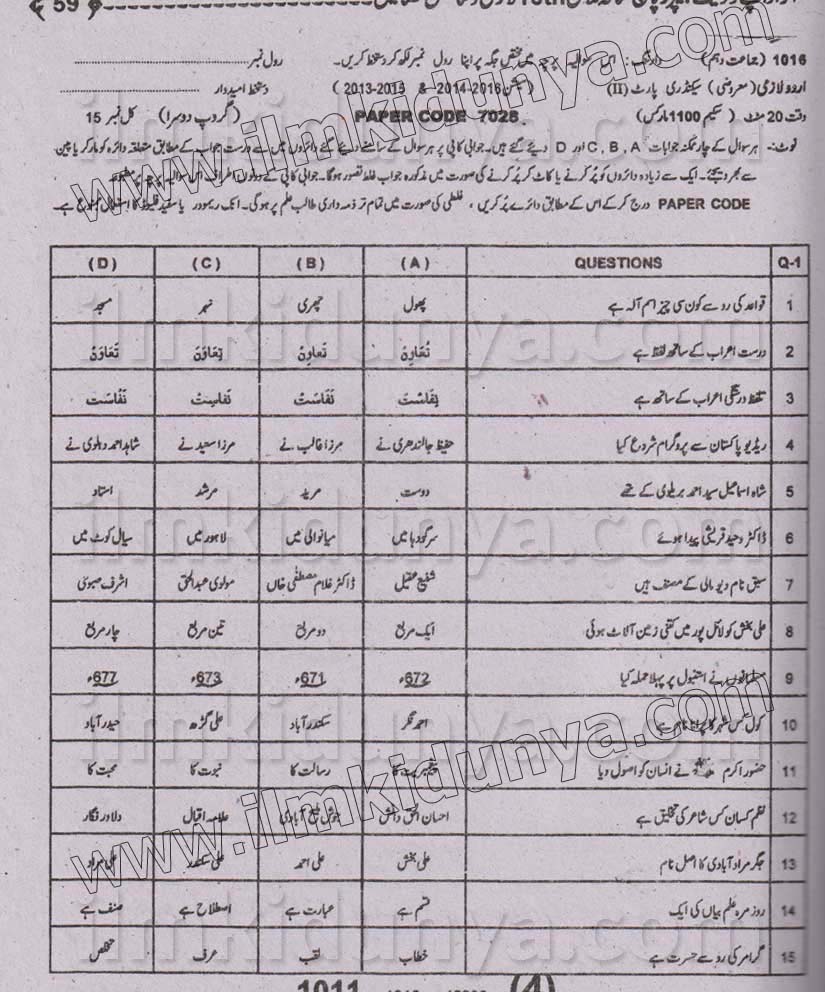 59
1016 (جماعت دہم) وارننگ: اس سوالیہ پرچے میں مختص جگہ پر اپنا رول نمبر لکھ کر دستخط کریں۔ رول نمبر
اردو لازمی (معروضی) سیکنڈری پارٹ (II) (سیشن 2014-2016 & 2013-2015) دستخط امیدوار
وقت 20 منٹ (سکیم 1100 مارکس) PAPER CODE 7028 (گروپ دوسرا) کل نمبر 15
نوٹ:- ہر سوال کے چار ممکنہ جوابات A ,B ,C اور D دیئے گئے ہیں۔ جوابی کاپی پر ہر سوال کے سامنے دیئے گئے دائروں میں سے درست جواب کے مطابق متعلقہ دائرہ کو مارکر یا پین
سے بھر دیجئے۔ ایک سے زیادہ دائروں کو پُر کرنے یا کاٹ کر پُر کرنے کی صورت میں مذکورہ جواب غلط تصور ہوگا۔ جوابی کاپی کے دونوں اطراف اس سوالیہ پرچہ پر
PAPER CODE درج کر کے اس کے مطابق دائرے پُر کریں، غلطی کی صورت میں تمام تر ذمہ داری طالب علم پر ہوگی۔ انک ریموور یا سفید فلیوڈ کا استعمال ممنوع ہے۔
Q-1 QUESTIONS (A) (B) (C) (D)
1 قواعد کی رو سے کون سی چیز اسم آلہ ہے پھول چھری نہر مسجد
2 درست اعراب کے ساتھ لفظ ہے تُعَاوِن تَعاوِن تِعَاوَن تَعَاوُن
3 تلفظ درستگی اعراب کے ساتھ ہے نِفَاسْت نَفَاسَتْ نَفَاسِت نَفُاسَت
4 ریڈیو پاکستان سے پروگرام شروع کیا حفیظ جالندھری نے مرزا غالب نے مرزا سعید نے شاہد احمد دہلوی نے
5 شاہ اسماعیل سید احمد بریلوی کے تھے دوست مرید مرشد استاد
6 ڈاکٹر وحید قریشی پیدا ہوئے سرگودہا میں میانوالی میں لاہور میں سیال کوٹ میں
7 سبق نام دیو مالی کے مصنف ہیں شفیع عقیل ڈاکٹر غلام مصطفٰی خاں مولوی عبدالحق اشرف صبوحی
8 علی بخش کو لائل پور میں کتنی زمین آلاٹ ہوئی ایک مربع دو مربع تین مربع چار مربع
9 مسلمانوں نے استنبول پر پہلا حملہ کیا 672ء 671ء 673ء 677ء
10 کول کس شہر کا پرانا نام ہے احمد نگر سکندر آباد علی گڑھ حیدر آباد
11 حضور اکرم ﷺ نے انسان کو اصول دیا پیغمبریت کا رسالت کا نبوت کا محبت کا
12 نظم کسان کس شاعر کی تخلیق ہے احسان الحق دانش جوش ملیح آبادی علامہ اقبال دلاور فگار
13 جگر مراد آبادی کا اصل نام علی بخش علی احمد علی سکندر علی مراد
14 روزمرہ علم بیاں کی ایک قسم ہے عبارت ہے اصطلاح ہے صنف ہے
15 گرامر کی رو سے حسرت ہے خطاب لقب عرف تخلص
1011 (4)
www.ilmkidunya.com
www.ilmkidunya.com
ilmkidunya.com
ilmkidunya.com
ilmkidunya.com
ilmkidunya.com